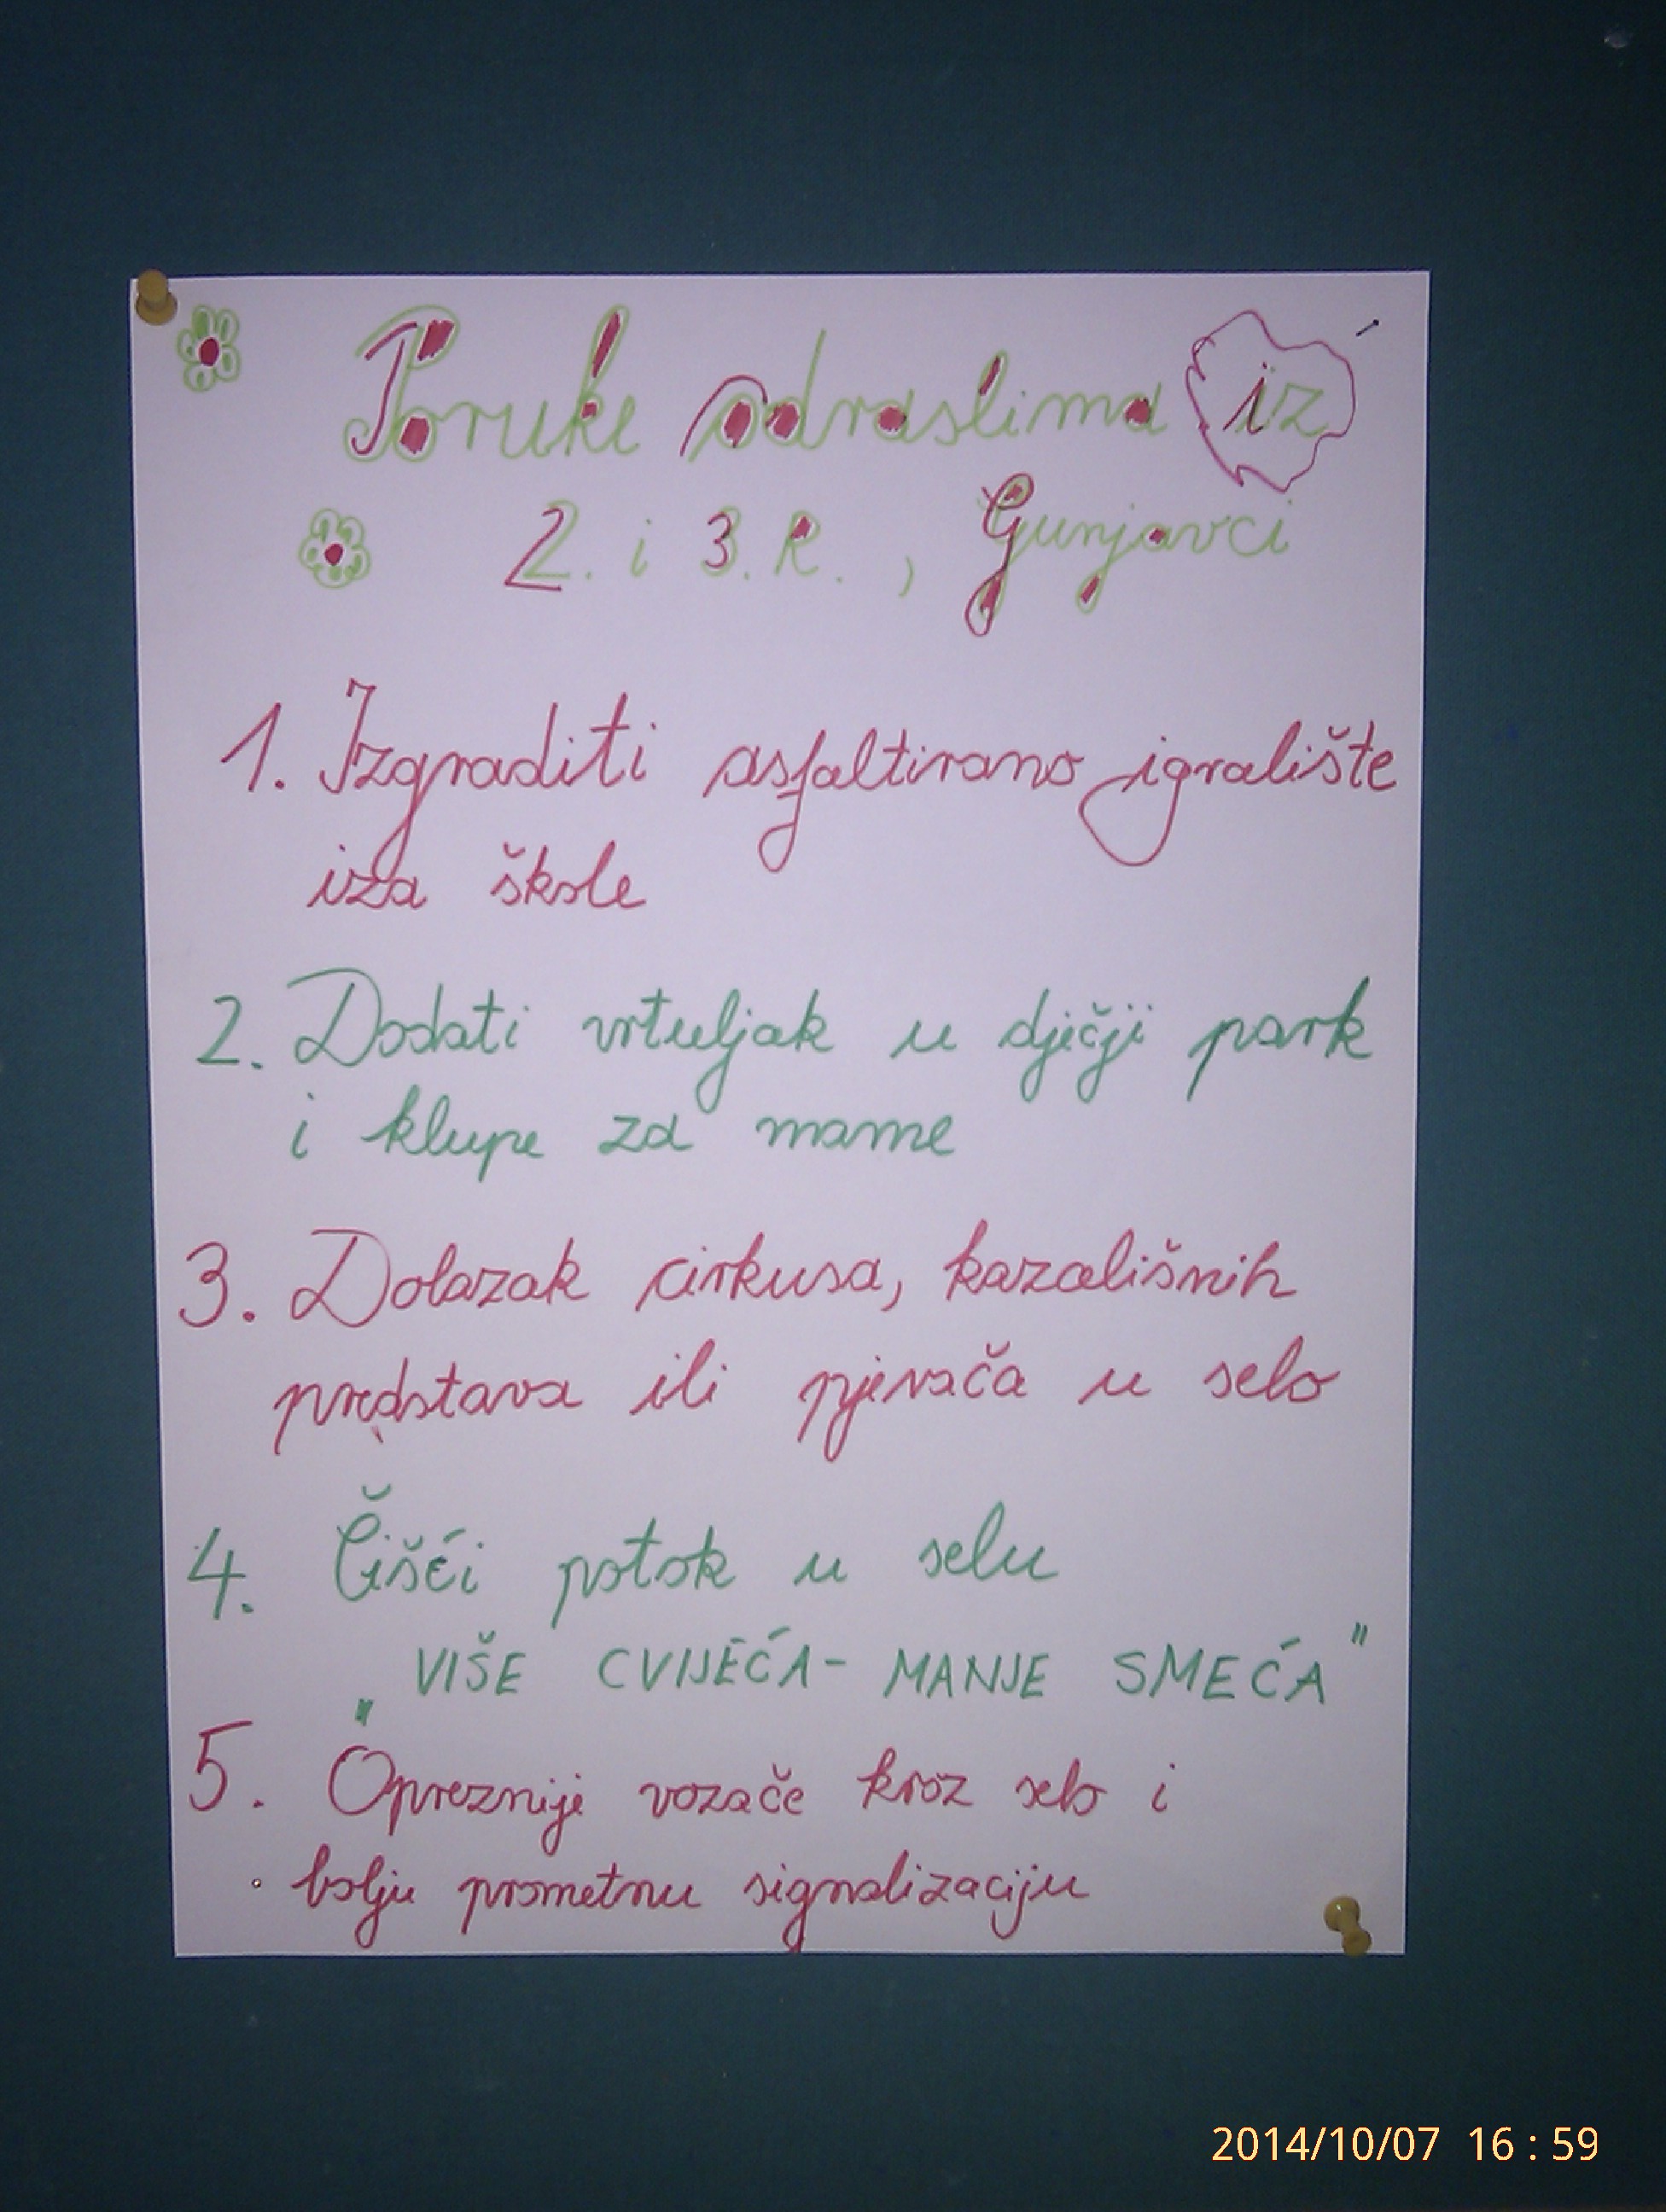 Poruke odraslima iz
2. i 3. R., Gunjavci
1. Izgraditi asfaltirano igralište
iza škole
2. Dodati vrtuljak u dječji park
i klupe za mame
3. Dolazak cirkusa, kazališnih
predstava ili pjevača u selo
4. Čišći potok u selu
„VIŠE CVIJEĆA- MANJE SMEĆA"
5. Opreznije vozače kroz selo i
bolju prometnu signalizaciju
2014/10/07 16:59